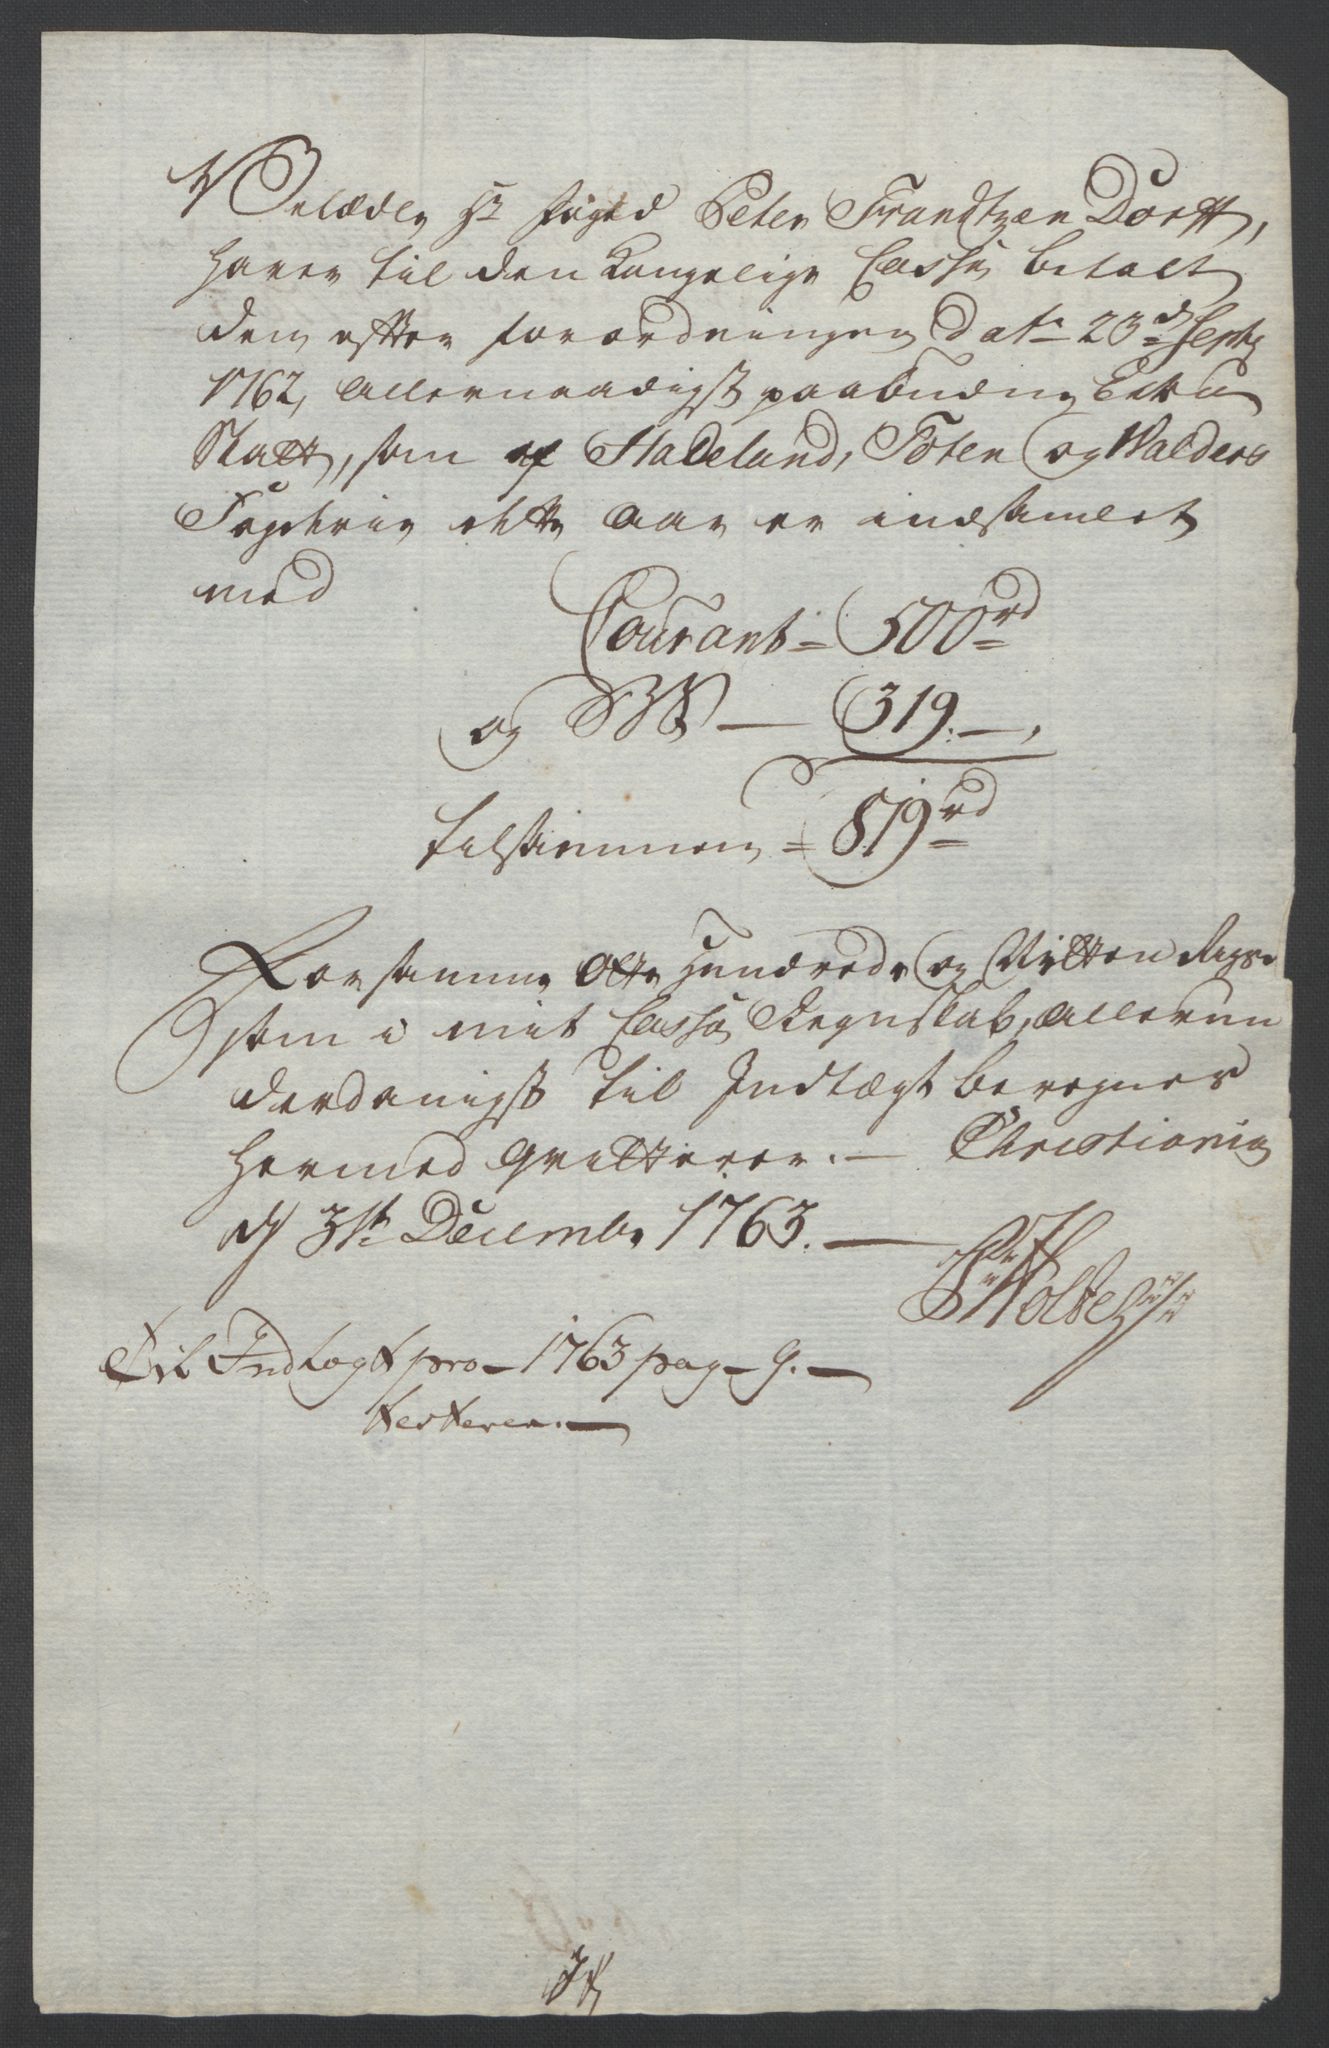 Velædle Hr Foged Peter Frandtzen Dorff,
haver til den Kongelige Cassa betalt
den efter forordningen Dat: 23d Septbr
1762, Allernaadigst paabudne Extra
Skatt, som af Hadeland, Toten og Walders
Fogderie dette Aar er indsamlet
med
Courant = 500rd
og 319. —,
tilsammen = 819rd
Hvorsamme Otte Hundrede og Nitten Rigsd
som i mit Cassa Regnskab, Allerun
derdanigst til Indtægt beregnes
hermed qvitterer. — Christiania
d 31te Decembr 1763. —
Til Indtægt pro — 1763 pag — 9. —
testerer. —